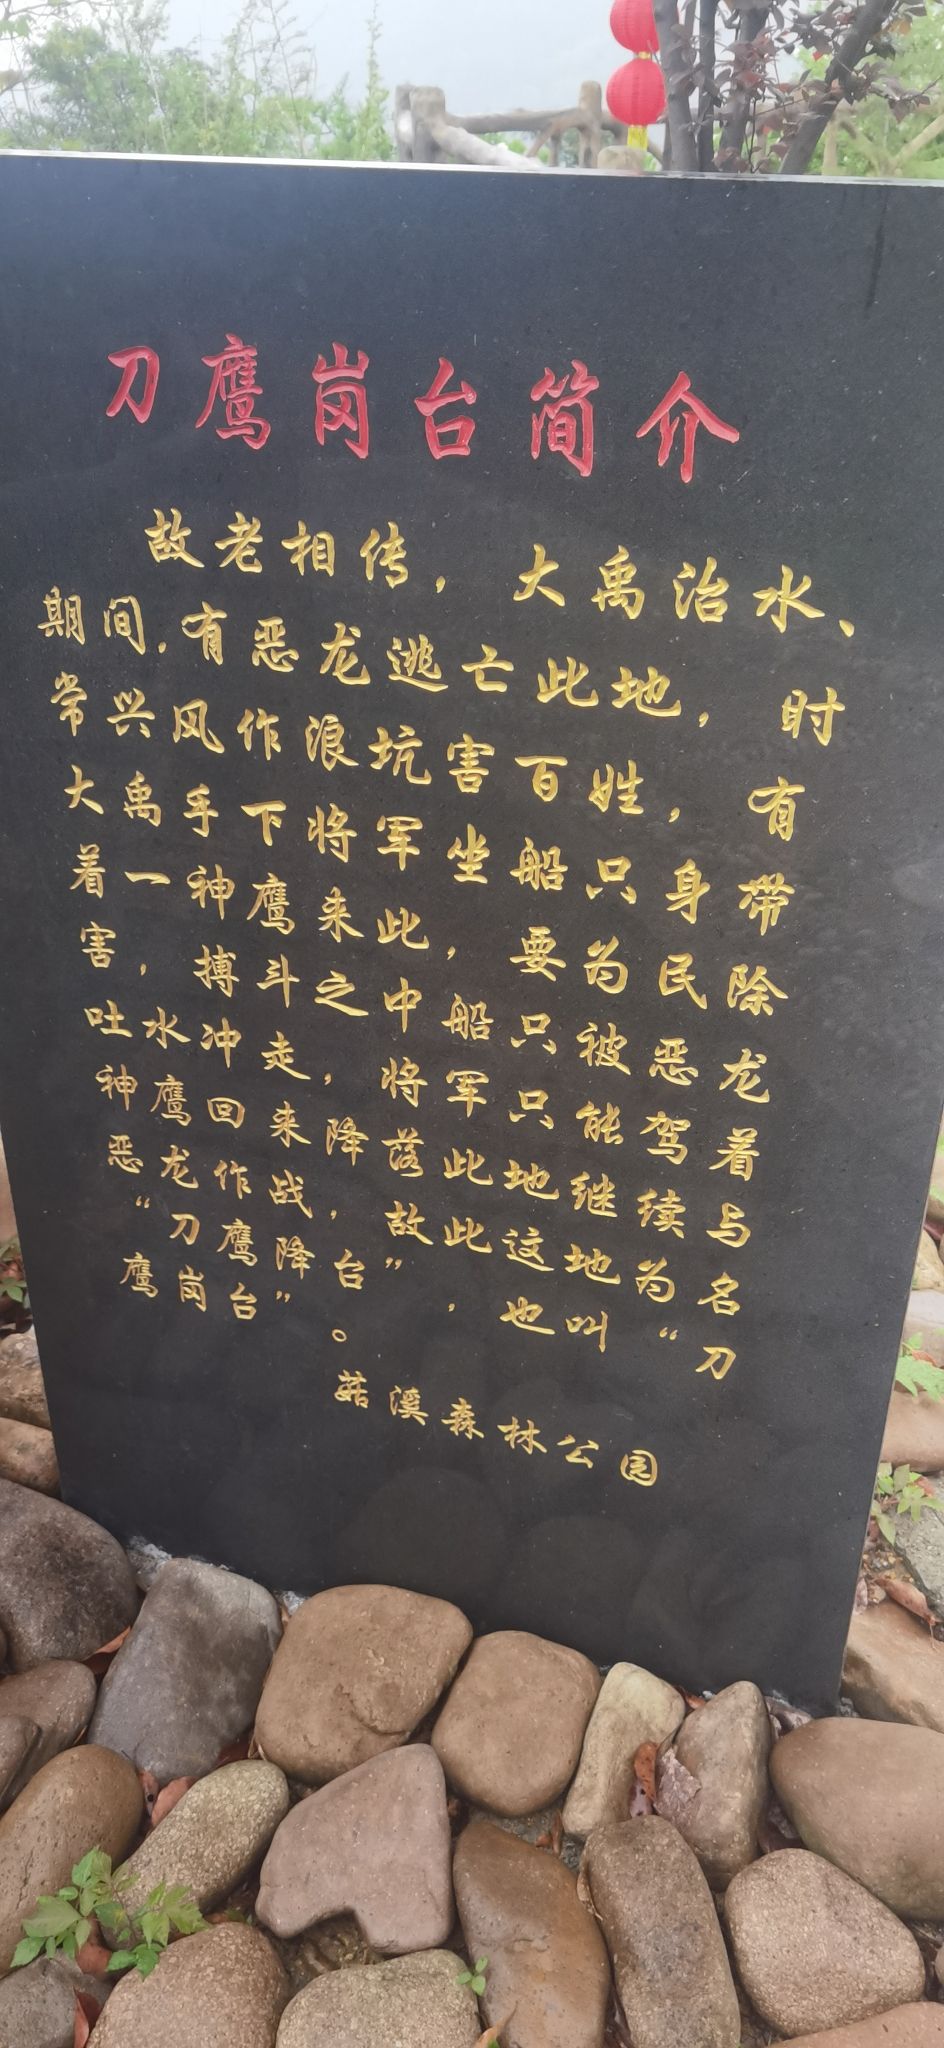 刀鹰岗台简介
故老相传，大禹治水、
期间，有恶龙逃亡此地，时
常兴风作浪坑害百姓，有
大禹手下将军坐船只身带
着一神鹰来此，要为民除
害，搏斗之中船只被恶龙
吐水冲走，将军只能驾着
神鹰回来降落此地继续与
恶龙作战，故此这地为名
“刀鹰降台”，也叫“刀
鹰岗台”。
菇溪森林公园